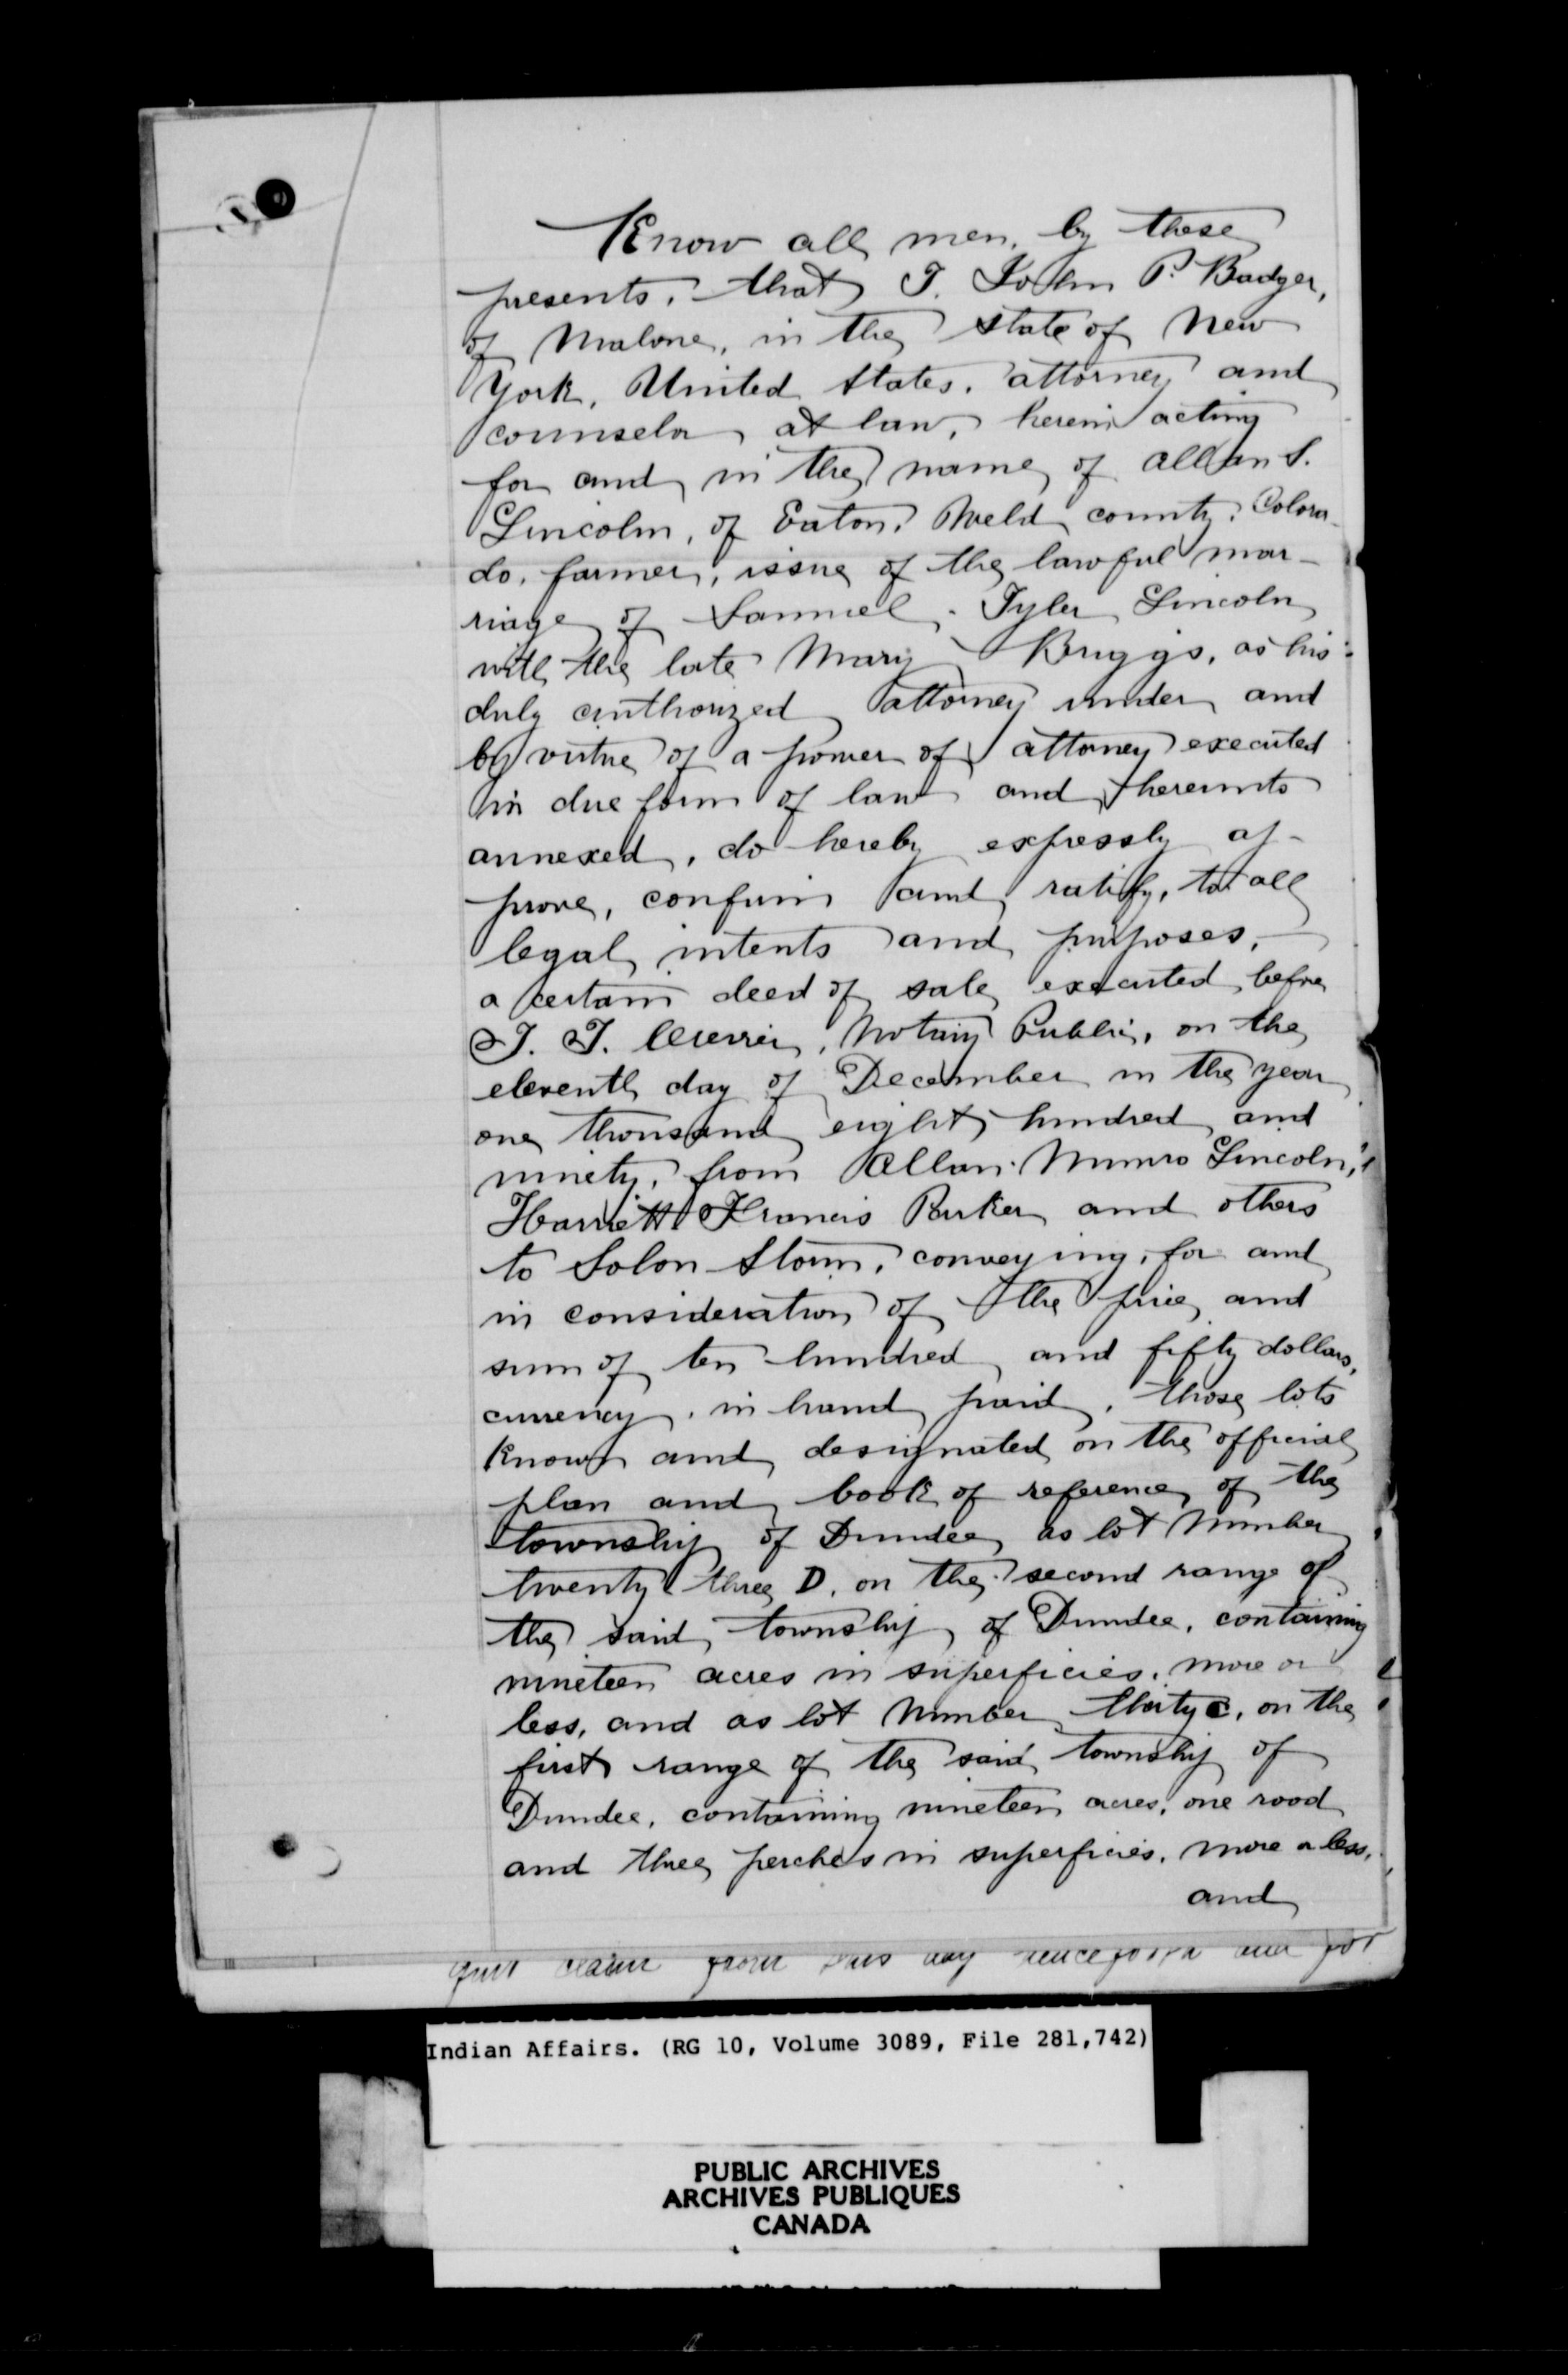 Know all men, by these
presents, that I, John P. Badger,
of Malone, in the state of New
York, United States, attorney and
counselor at law, herein acting
for and in the name of Allan S.
Lincoln, of Eaton, Weld county, Colora-
do, farmer, issue of the lawful mar-
riage of Samuel Tyler Lincoln
with the late Mary Briggs, as his
duly authorized attorney under and
by virtue of a power of attorney executed
in due form of law and hereunto
annexed, do hereby expressly ap-
prove, confirm and ratify, to all
legal intents and purposes,
a certain deed of sale executed before
I. I. Crevier, Notary Public, on the
eleventh day of December in the year
one thousand eight hundred and
ninety, from Allan Munro Lincoln,
Harriett Francis Parker and others
to Solon Storm, conveying, for and
in consideration of the price and
sum of ten hundred and fifty dollars,
currency, in hand paid, those lots
known and designated on the official
plan and book of reference of the
township of Dundee as lot Number
twenty three D, on the second range of
the said township of Dundee, containing
nineteen acres in superficies, more or
less, and as lot Number thirty C, on the
first range of the said township of
Dundee, containing nineteen acres, one rood
and three perches in superficies, more or less,
and
quit claim from this day henceforth and for
Indian Affairs. (RG 10, Volume 3089, File 281,742)
PUBLIC ARCHIVES
ARCHIVES PUBLIQUES
CANADA